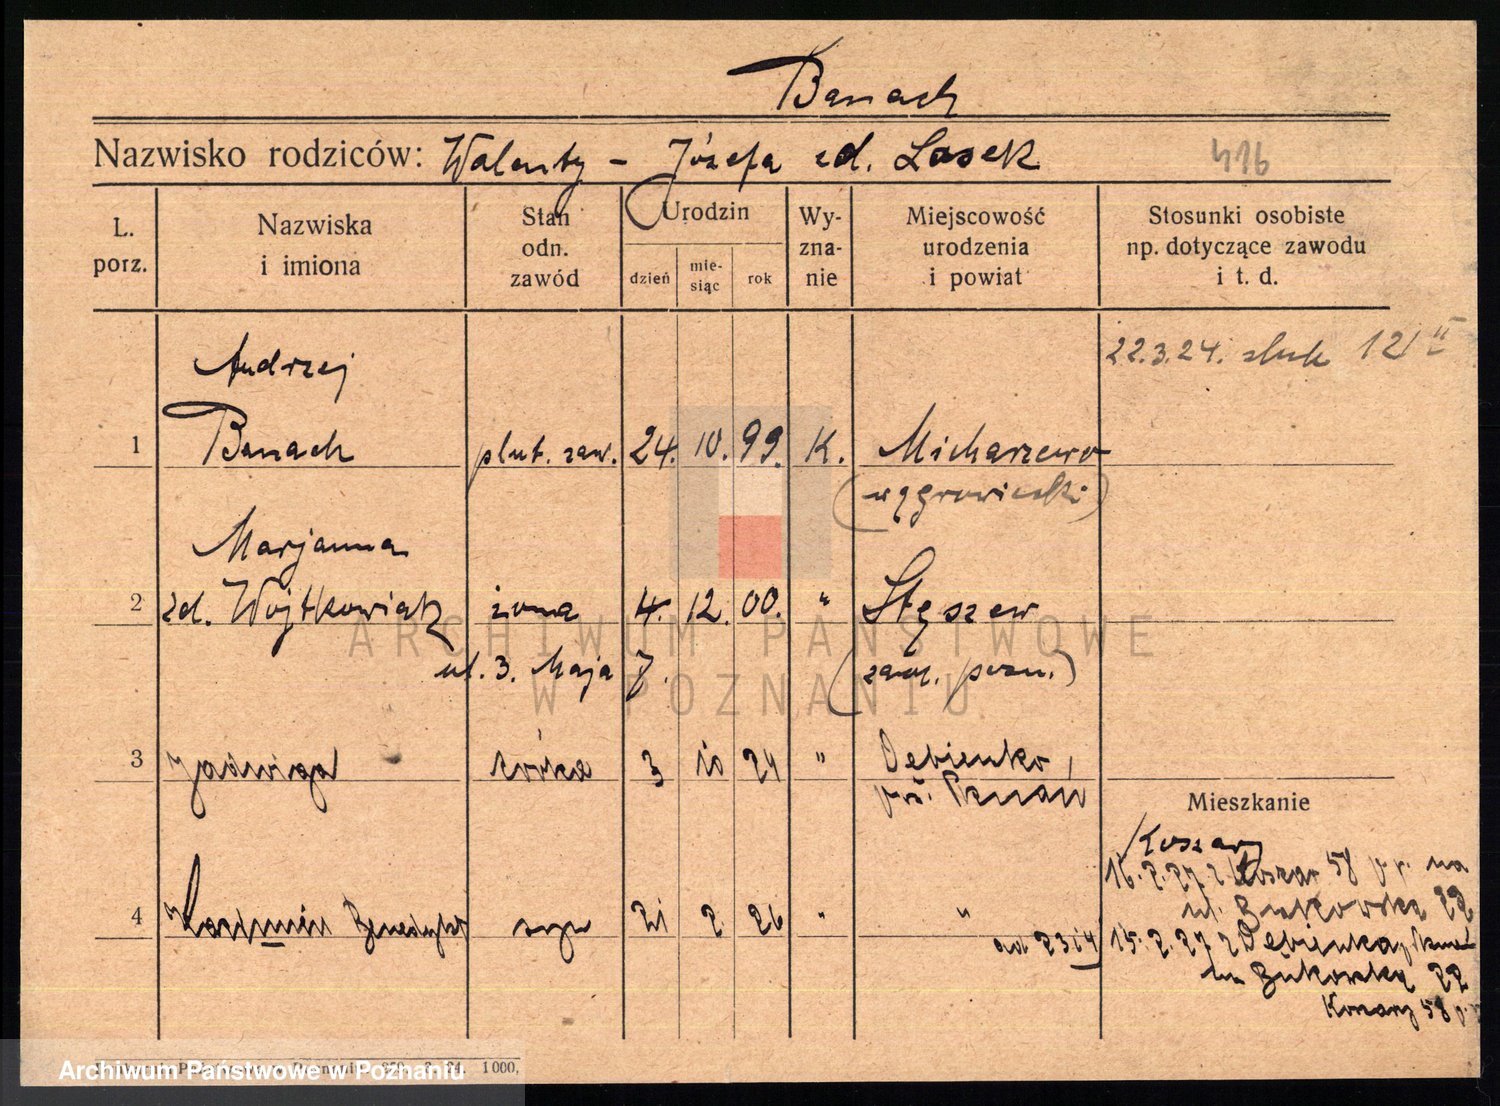 Banach
Nazwisko rodziców: Walenty - Józefa zd. Lasek
416
L. porz.
Nazwiska i imiona
Stan odn. zawód
Urodzin
dzień
mie-siąc
rok
Wy-zna-nie
Miejscowość urodzenia i powiat
Stosunki osobiste np. dotyczące zawodu i t. d.
22.3.24. 
Andrzej
1 Banach plut. zaw. 24. 10. 99. K. Micharzewo
(wągrowiecki)
Marjanna
2 zd. Wojtkowiak żona 4. 12. 00. " Stęszew
ul. 3. Maja 7. (zach. pozn.)
3 Jadwiga córka 3 10 24 " Dębienko,
pow. Poznań
Mieszkanie
Koszary
16.2.27 z Koszar 58 p.p. na
ul. Bukowska 22
4 Kazimir Benedykt syn 21 2 26 " "
15.2.27 z Dębienka,
Bukowska 22
Koszary 58 p.
1000.
ARCHIWUM PAŃSTWOWE
W POZNANIU
Archiwum Państwowe w Poznaniu